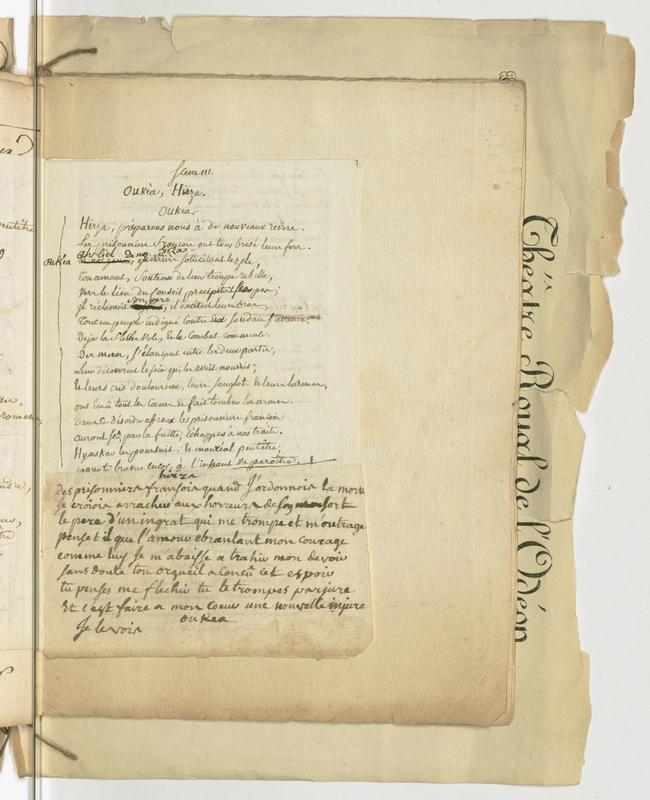 Scene III.
Oukéa, Hirza.
Oukéa.
Hirza, préparons nous à de nouveaux revers.
Les prisonniers françois ont tous brisé leurs fers.
Oukéa
guerriers sollicitant le zèle,
Tonamant, soutenu de leur troupe rebelle,
Vers le lieu du Conseil précipitoit ses pas;
Il réclamoit son père, il excitoit leurs bras,
Tout un peuple indigné contre eux soudain s'avance.
Déja la flèche vole, et le Combat commence.
Des meres, s'élançant entre les deux partis,
Leur découvrent le sein qui les avoit nourris;
Et leurs cris douloureux, leurs sanglots et leurs larmes,
ont ému tous les Cœurs et fait tomber les armes.
Dans ce désordre affreux les prisonniers françois
auront sçu, par la fuite, échapper à nos traits.
Hyaskar les poursuit: et monréal peutêtre,
à l'instant va paroître.
hirza
des prisonniers françois quand J'ordonnois la mort
Je croiois arracher aux horreurs de son sort
le pere d'un ingrat qui me trompe et m'outrage
pense t il que l'amour ebranlant mon courage
comme luy Je m'abaisse a trahir mon devoir
sans doute ton orgueil a concû cet espoir
tu penses me flechir tu te trompes parjure
Et c'est faire a mon Coeur une nouvelle injure
oukea
Je le vois
Théâtre Royal de l'Odéon